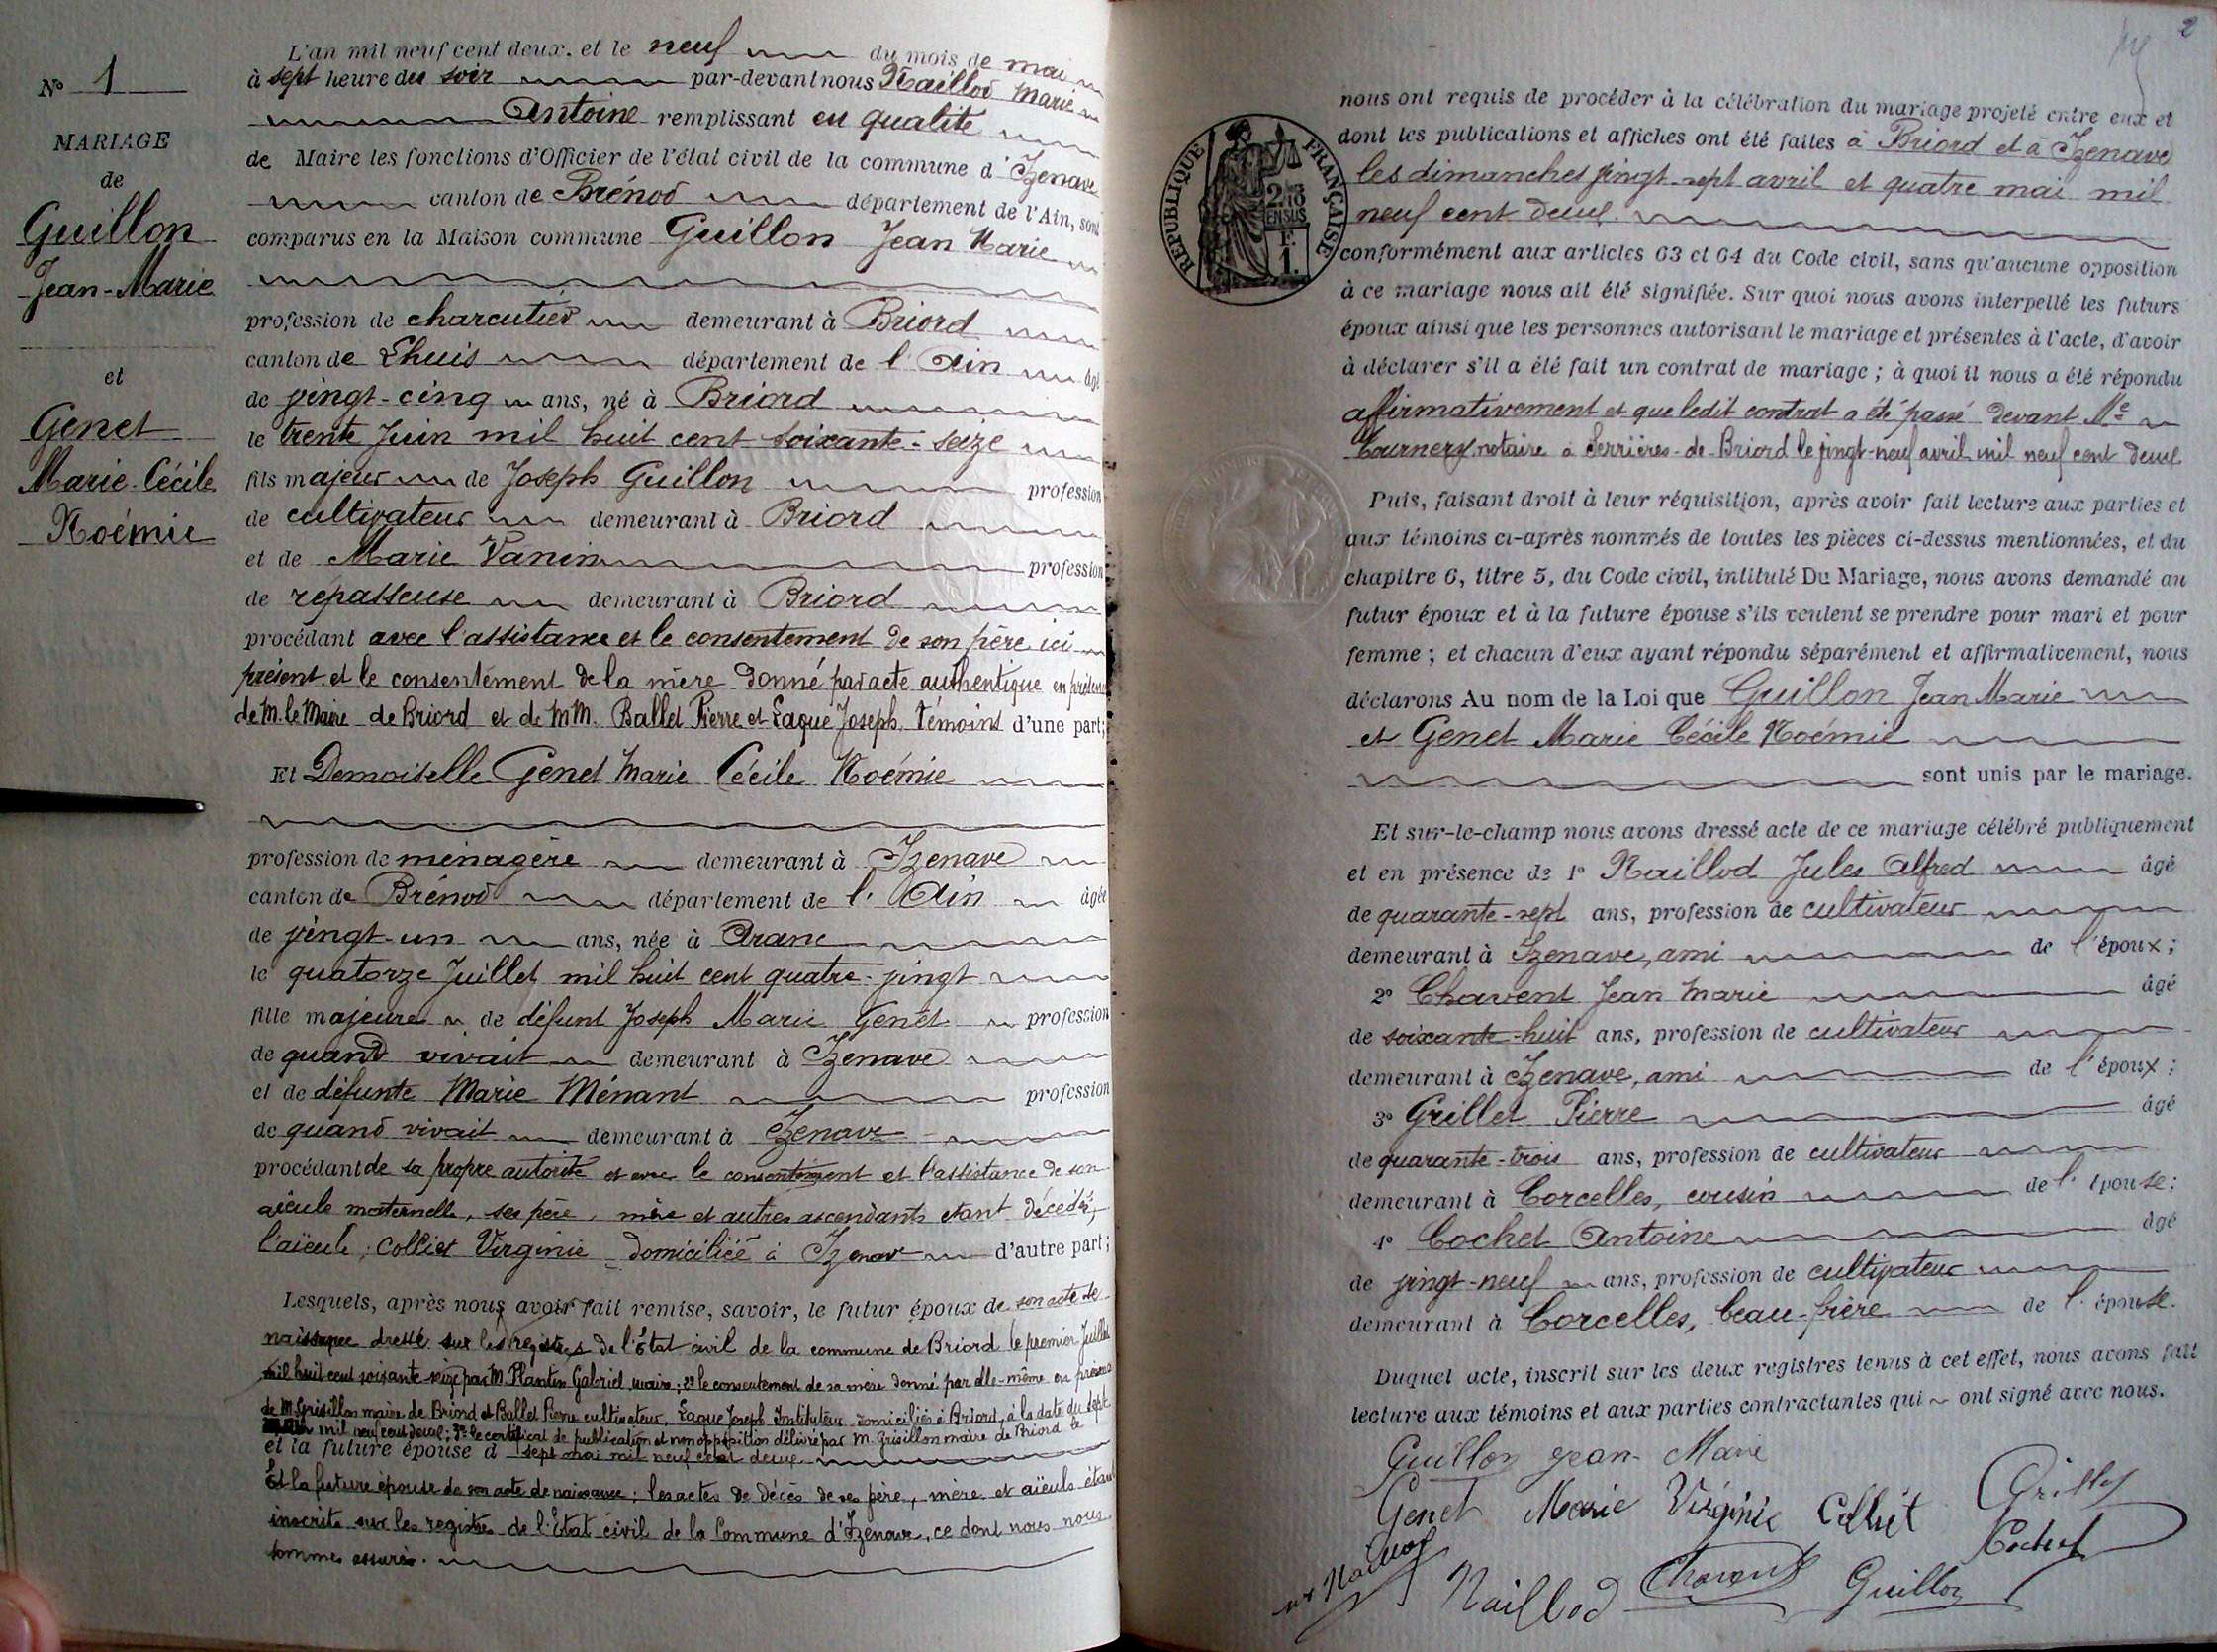 N° 1
MARIAGE
de
Guillon
Jean-Marie
et
Genet
Marie Cécile
Noémie
L'an mil neuf cent deux. et le neuf du mois de mai
à sept heure du soir par-devant nous Naillod Marie
Antoine remplissant en qualité
de Maire les fonctions d'Officier de l'état civil de la commune d'Izenave
canton de Brénod département de l'Ain, sont
comparus en la Maison commune Guillon Jean Marie
profession de charcutier demeurant à Briord
canton de Lhuis département de l'Ain âgé
de vingt-cinq ans, né à Briord
le trente Juin mil huit cent soixante-seize
fils majeur de Joseph Guillon profession
de cultivateur demeurant à Briord
et de Marie Vanin profession
de repasseuse demeurant à Briord
procédant avec l'assistance et le consentement de son père ici
présent et le consentement de la mère donné par acte authentique en présence
de M. le Maire de Briord et de MM. Ballet Pierre et Laque Joseph, témoins d'une part;
Et Demoiselle Genet Marie Cécile Noémie
profession de ménagère demeurant à Izenave
canton de Brénod département de l'Ain âgée
de vingt-un ans, née à Aranc
le quatorze Juillet mil huit cent quatre-vingt
fille majeure de défunt Joseph Marie Genet profession
de quand vivait demeurant à Izenave
et de défunte Marie Ménant profession
de quand vivait demeurant à Izenave
procédant de sa propre autorité et avec le consentement et l'assistance de son
aïeule maternelle, ses père, mère et autres ascendants étant décédés,
l'aïeule, Colliet Virginie domiciliée à Izenave d'autre part;
Lesquels, après nous avoir fait remise, savoir, le futur époux de son acte de
naissance dressé sur les registres de l'Etat civil de la commune de Briord le premier Juillet
mil huit cent soixante-seize par M. Plantin Gabriel, maire; 2° le consentement de sa mère donné par elle-même en présence
de M. Grisillon maire de Briord et Ballet Pierre cultivateur, Laque Joseph Instituteur domiciliés à Briord, à la date du sept
mil neuf cent deux; 3° le certificat de publication et non opposition délivré par M. Grisillon maire de Briord le
et la future épouse d sept mai mil neuf cent deux
Et la future épouse de son acte de naissance; les actes de décès de ses père, mère et aïeuls étant
inscrits sur les registres de l'Etat civil de la Commune d'Izenave, ce dont nous nous
sommes assurés.
2
RÉPUBLIQUE FRANÇAISE
2/10
EN SUS
F.
1.
nous ont requis de procéder à la célébration du mariage projeté entre eux et
dont les publications et affiches ont été faites à Briord et à Izenave
les dimanches vingt-sept avril et quatre mai mil
neuf cent deux.
conformément aux articles 63 et 64 du Code civil, sans qu'aucune opposition
à ce mariage nous ait été signifiée. Sur quoi nous avons interpellé les futurs
époux ainsi que les personnes autorisant le mariage et présentes à l'acte, d'avoir
à déclarer s'il a été fait un contrat de mariage; à quoi il nous a été répondu
affirmativement et que ledit contrat a été passé devant Me
Tournery notaire à Serrières-de-Briord le vingt-neuf avril mil neuf cent deux
Puis, faisant droit à leur réquisition, après avoir fait lecture aux parties et
aux témoins ci-après nommés de toutes les pièces ci-dessus mentionnées, et du
chapitre 6, titre 5, du Code civil, intitulé Du Mariage, nous avons demandé au
futur époux et à la future épouse s'ils veulent se prendre pour mari et pour
femme; et chacun d'eux ayant répondu séparément et affirmativement, nous
déclarons Au nom de la Loi que Guillon Jean Marie
et Genet Marie Cécile Noémie
sont unis par le mariage.
Et sur-le-champ nous avons dressé acte de ce mariage célébré publiquement
et en présence de 1° Naillod Jules Alfred âgé
de quarante-sept ans, profession de cultivateur
demeurant à Izenave, ami de l'époux;
2° Chavent Jean Marie âgé
de soixante-huit ans, profession de cultivateur
demeurant à Izenave, ami de l'époux;
3° Grillet Pierre âgé
de quarante-trois ans, profession de cultivateur
demeurant à Corcelles, cousin de l'épouse;
4° Cochet Antoine âgé
de vingt-neuf ans, profession de cultivateur
demeurant à Corcelles, beau-frère de l'épouse.
Duquel acte, inscrit sur les deux registres tenus à cet effet, nous avons fait
lecture aux témoins et aux parties contractantes qui ont signé avec nous.
Guillon Jean-Marie
Genet Marie Virginie Colliet Grillet
Cochet
Naillod Naillod Chavent Guillon